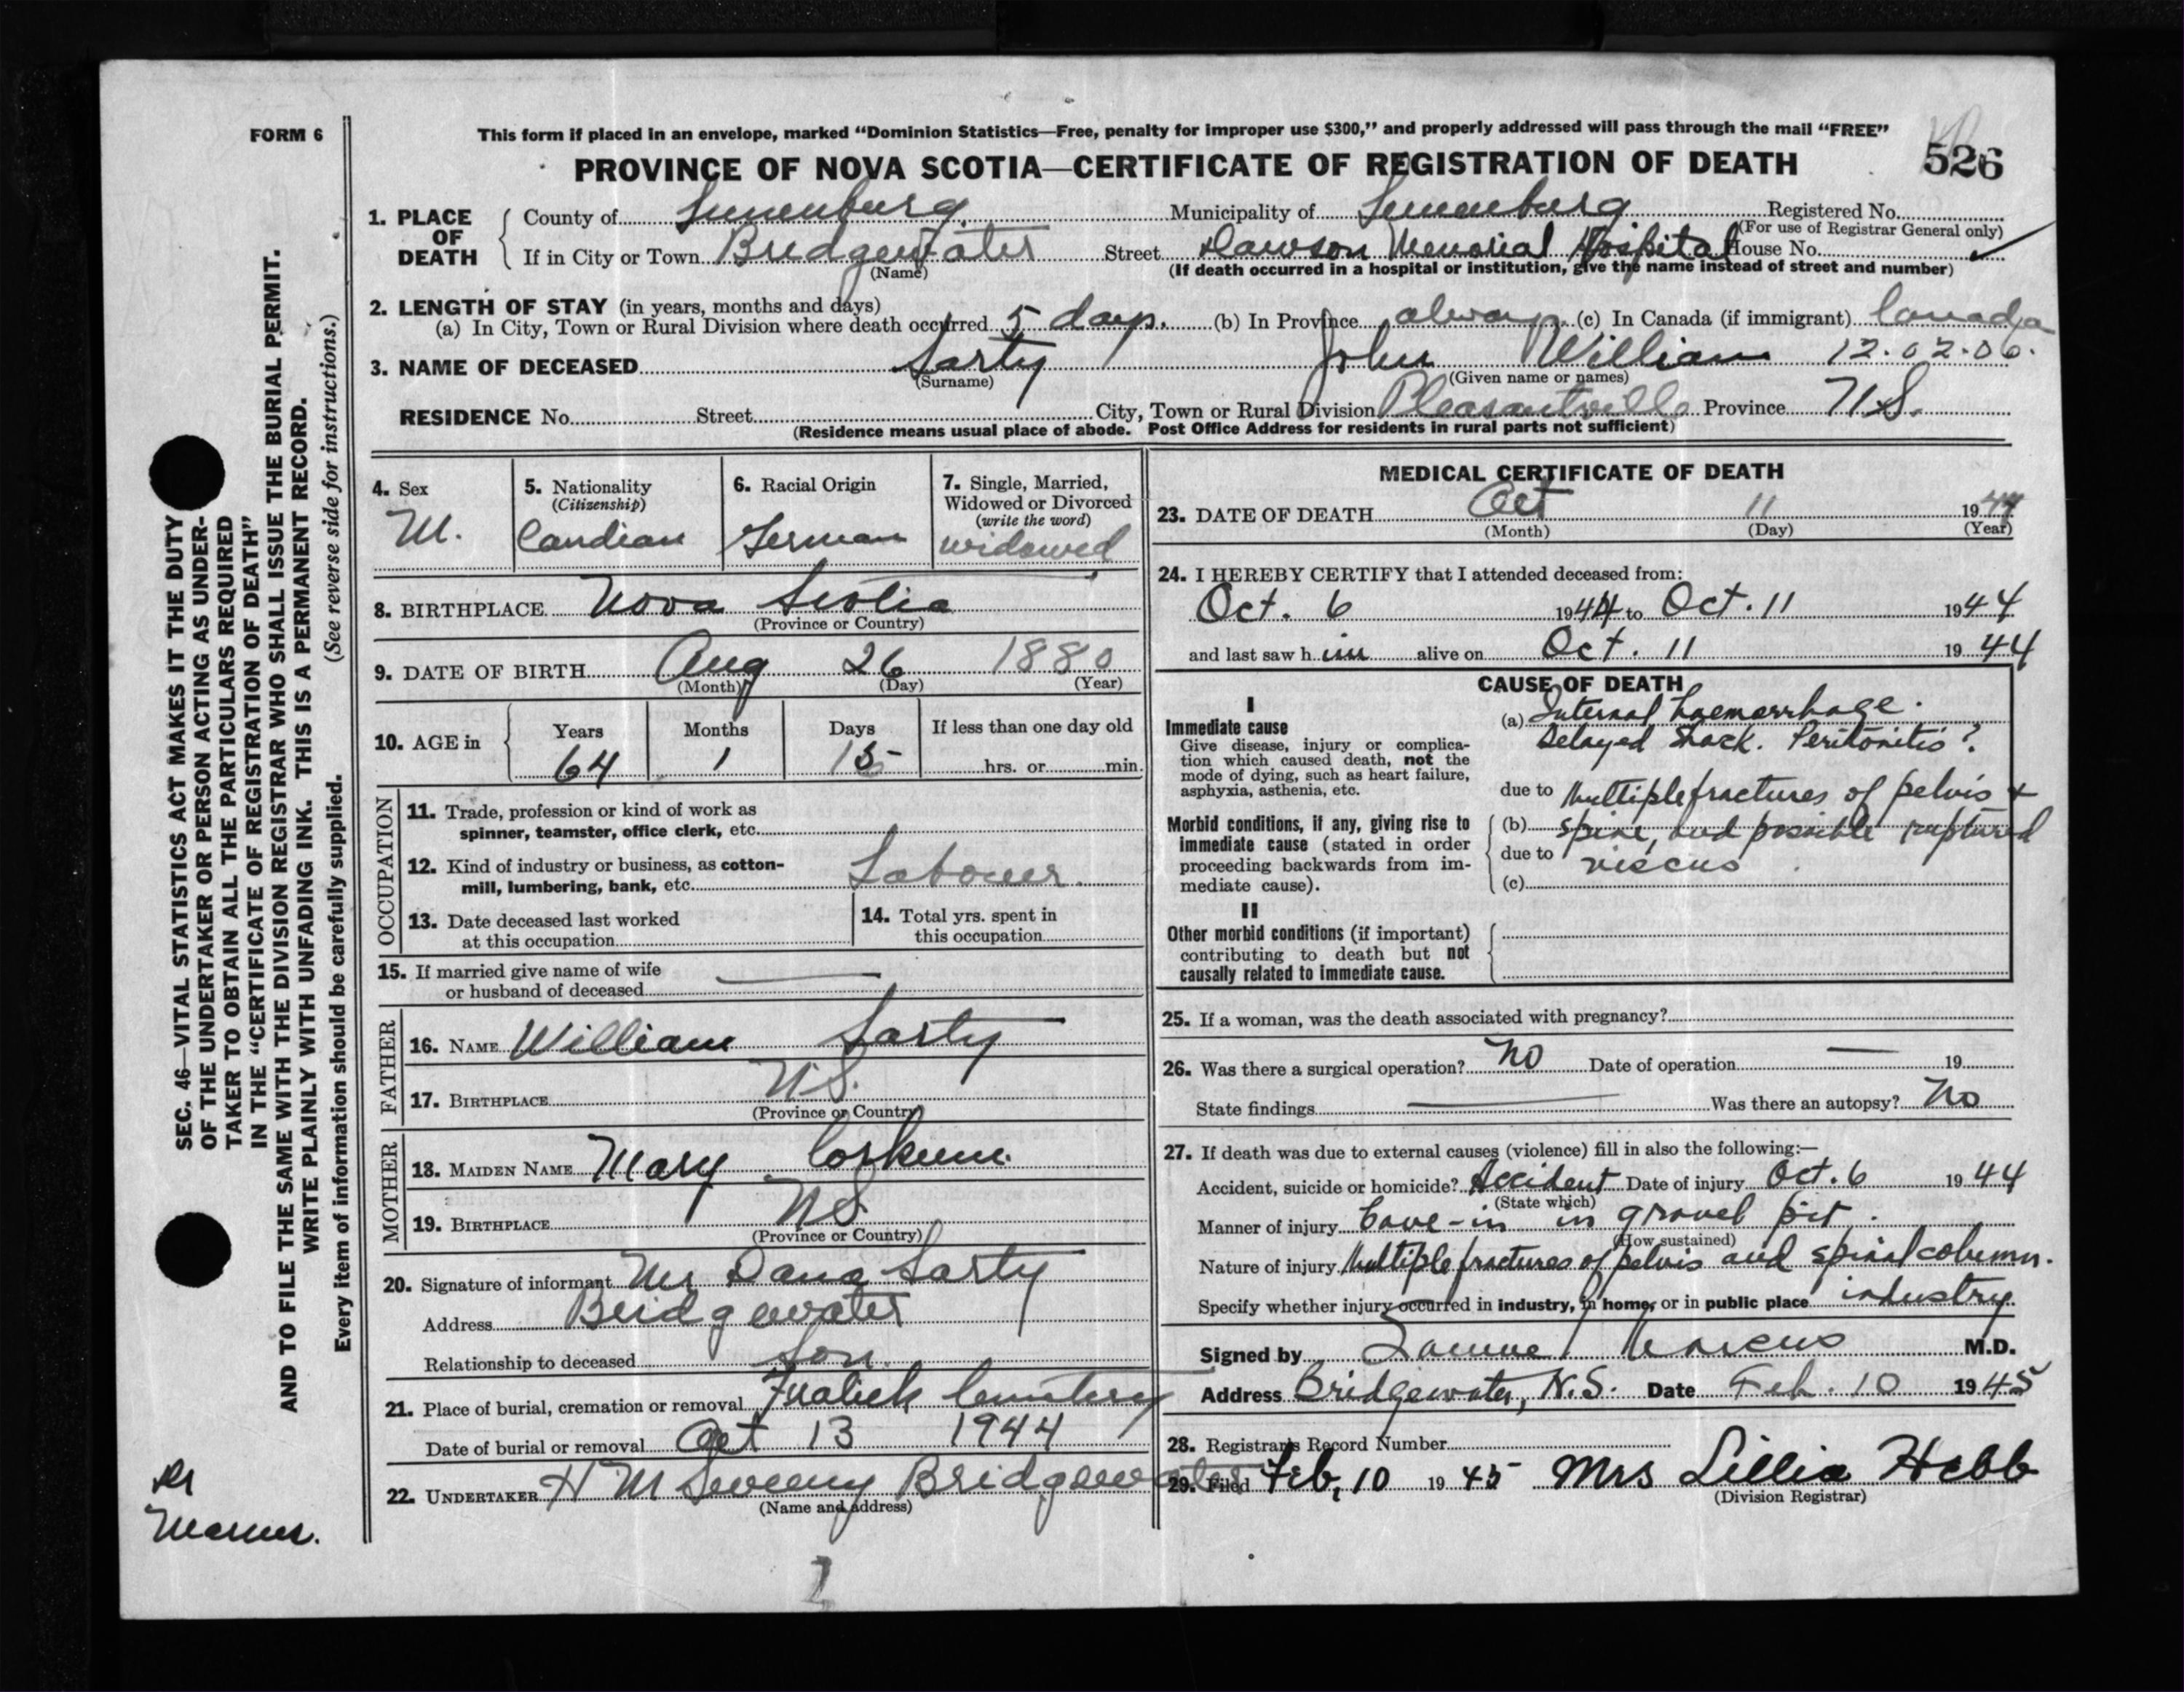 FORM 6
This form if placed in an envelope, marked “Dominion Statistics—Free, penalty for improper use $300,” and properly addressed will pass through the mail “FREE”
PROVINCE OF NOVA SCOTIA—CERTIFICATE OF REGISTRATION OF DEATH 526
1. PLACE OF DEATH { County of Lunenburg Municipality of Lunenburg Registered No.
(For use of Registrar General only)
If in City or Town Bridgewater Street Dawson Memorial Hospital House No.
(Name) (If death occurred in a hospital or institution, give the name instead of street and number)
2. LENGTH OF STAY (in years, months and days)
(a) In City, Town or Rural Division where death occurred 5 days. (b) In Province always (c) In Canada (if immigrant) Canada
3. NAME OF DECEASED Sarty John William 12-02-06.
(Surname) (Given name or names)
RESIDENCE No. Street City, Town or Rural Division Pleasantville Province N.S.
(Residence means usual place of abode. Post Office Address for residents in rural parts not sufficient)
4. Sex
M.
5. Nationality
(Citizenship)
Candian
6. Racial Origin
German
7. Single, Married,
Widowed or Divorced
(write the word)
widowed
8. BIRTHPLACE Nova Scotia
(Province or Country)
9. DATE OF BIRTH Aug 26 1880
(Month) (Day) (Year)
10. AGE in { Years Months Days If less than one day old
64 1 15 hrs. or min.
OCCUPATION
11. Trade, profession or kind of work as
spinner, teamster, office clerk, etc.
12. Kind of industry or business, as cotton-
mill, lumbering, bank, etc. Labourer.
13. Date deceased last worked
at this occupation
14. Total yrs. spent in
this occupation
15. If married give name of wife
or husband of deceased —
FATHER
16. NAME William Sarty
17. BIRTHPLACE N.S.
(Province or Country)
MOTHER
18. MAIDEN NAME Mary Corkum.
19. BIRTHPLACE N.S.
(Province or Country)
20. Signature of informant Mr Dana Sarty
Address Bridgewater
Relationship to deceased Son.
21. Place of burial, cremation or removal Cemetery
Date of burial or removal Oct 13 1944
22. UNDERTAKER H M Sweeny Bridgewater
(Name and address)
MEDICAL CERTIFICATE OF DEATH
23. DATE OF DEATH Oct 11 1944
(Month) (Day) (Year)
24. I HEREBY CERTIFY that I attended deceased from:
Oct. 6 1944 to Oct. 11 1944
and last saw him alive on Oct. 11 1944
CAUSE OF DEATH
I
Immediate cause
Give disease, injury or complica-
tion which caused death, not the
mode of dying, such as heart failure,
asphyxia, asthenia, etc.
(a) Internal haemorrhage.
Delayed Shock. Peritonitis?
due to Multiple fractures of pelvis +
Morbid conditions, if any, giving rise to
immediate cause (stated in order
proceeding backwards from im-
mediate cause).
(b) spine, and possible ruptured
due to viscus
(c)
II
Other morbid conditions (if important)
contributing to death but not
causally related to immediate cause.
25. If a woman, was the death associated with pregnancy?
26. Was there a surgical operation? No Date of operation — 19
State findings — Was there an autopsy? No
27. If death was due to external causes (violence) fill in also the following:—
Accident, suicide or homicide? Accident Date of injury Oct. 6 1944
(State which)
Manner of injury Cave-in in gravel pit.
(How sustained)
Nature of injury Multiple fractures of pelvis and spinal column.
Specify whether injury occurred in industry, in home, or in public place industry
Signed by Samuel Marcus M.D.
Address Bridgewater, N.S. Date Feb. 10 1945
28. Registrar's Record Number
29. Filed Feb, 10 1945 Mrs Lillia Hebb
(Division Registrar)
SEC. 46—VITAL STATISTICS ACT MAKES IT THE DUTY
OF THE UNDERTAKER OR PERSON ACTING AS UNDER-
TAKER TO OBTAIN ALL THE PARTICULARS REQUIRED
IN THE “CERTIFICATE OF REGISTRATION OF DEATH”
AND TO FILE THE SAME WITH THE DIVISION REGISTRAR WHO SHALL ISSUE THE BURIAL PERMIT.
WRITE PLAINLY WITH UNFADING INK. THIS IS A PERMANENT RECORD.
(See reverse side for instructions.)
Every item of information should be carefully supplied.
Dr
Marcus.